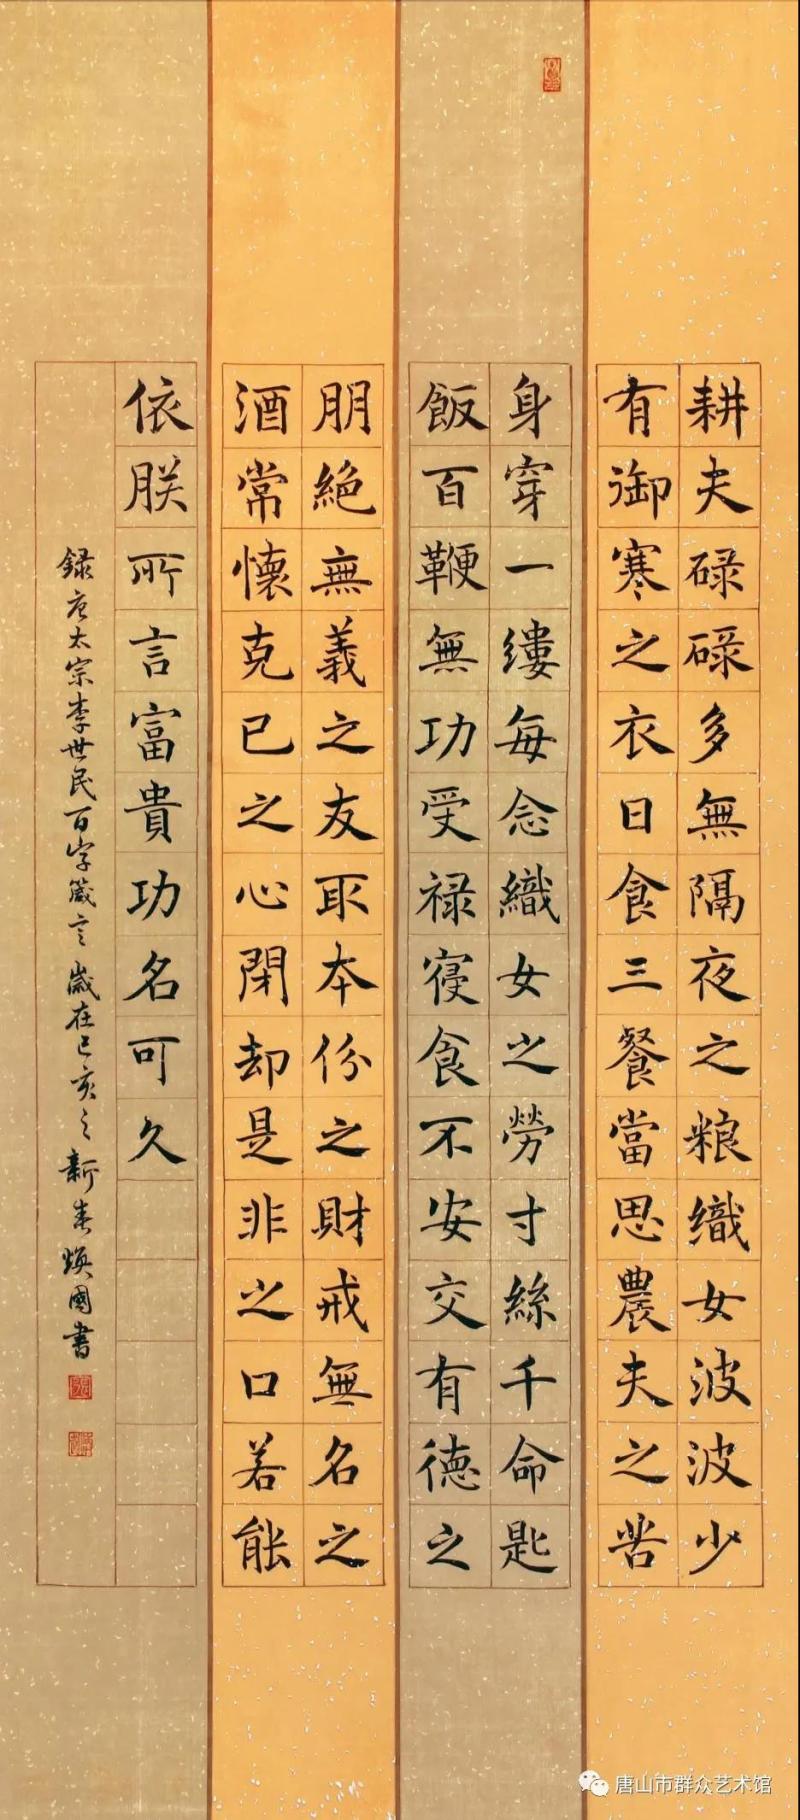 耕夫碌碌多無隔夜之粮織女波波少
有御寒之衣日食三餐當思農夫之苦
身穿一缕每念織女之勞寸絲千命匙
飯百鞭無功受禄寝食不安交有德之
朋絕無義之友取本份之財戒無名之
酒常懷克己之心閉却是非之口若能
依朕所言富貴功名可久
録唐太宗李世民百字箴言 歲在己亥之新春煥國書
唐山市群众艺术馆